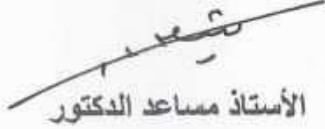 الأستاذ مساعد الدكتور